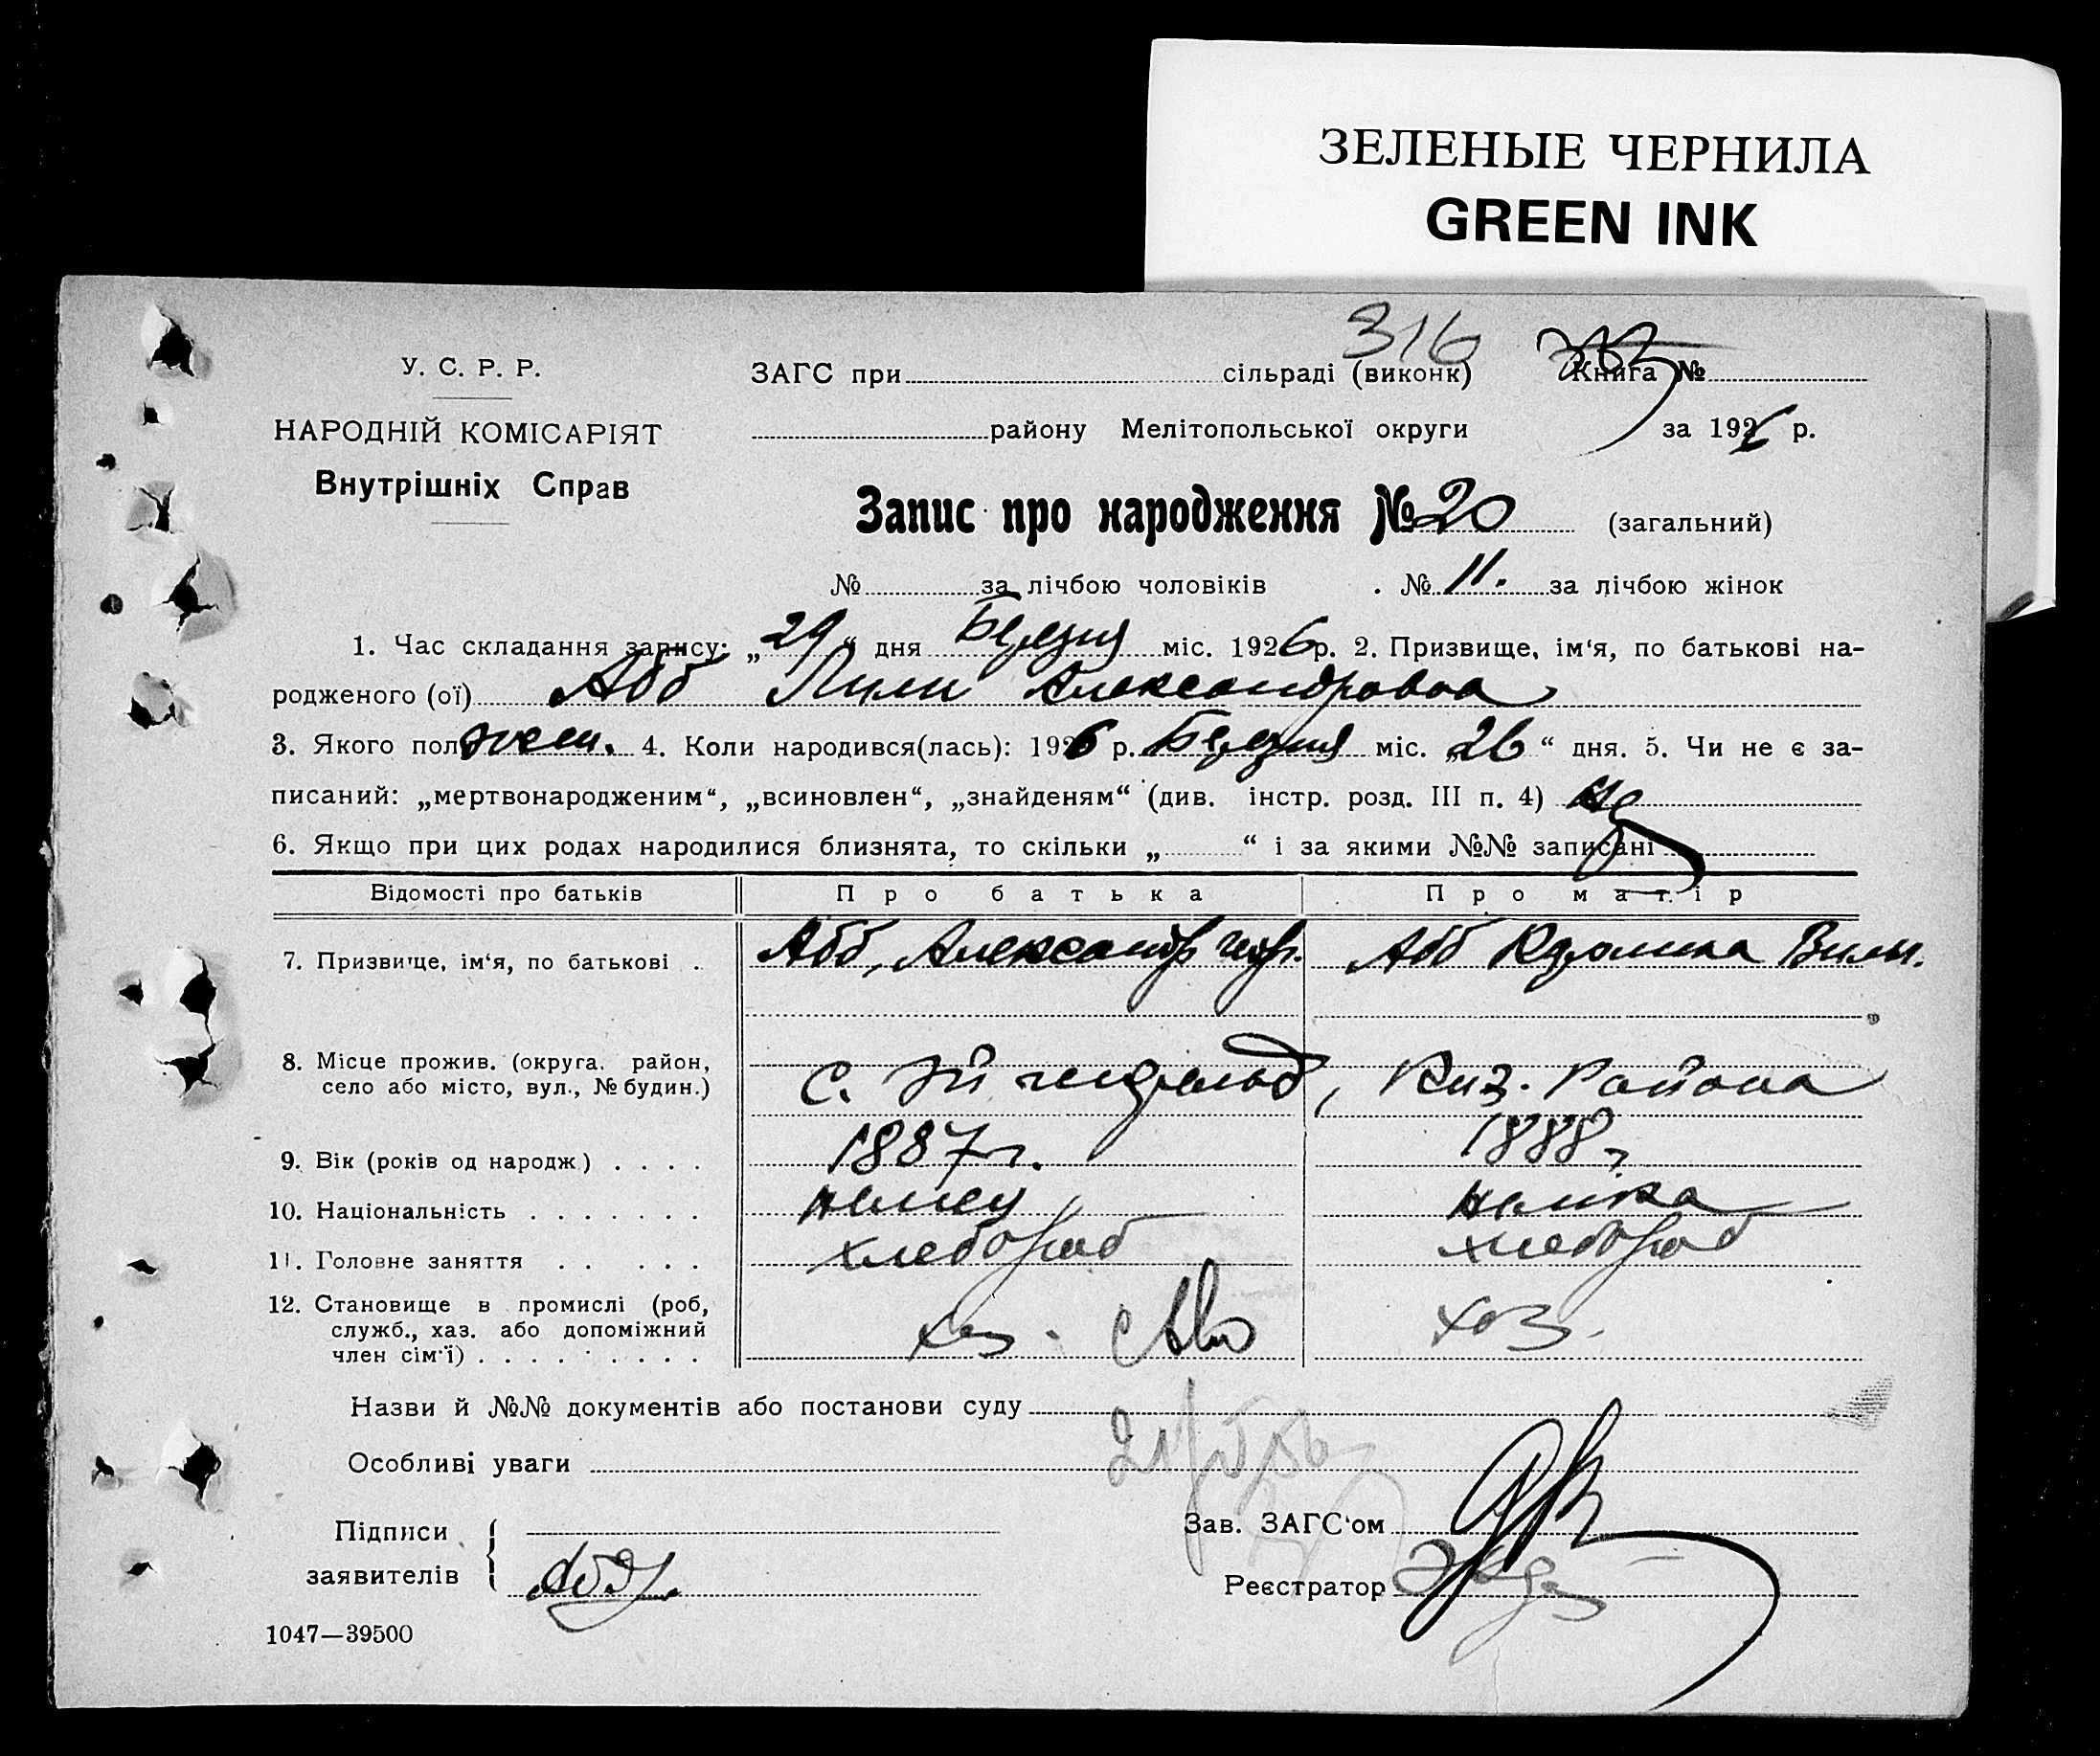 ЗЕЛЕНЫЕ ЧЕРНИЛА
GREEN INK
316
У. С. Р. Р.
ЗАГС при сільраді (виконк) Книга №
НАРОДНІЙ КОМІСАРІЯТ
району Мелітопольської округи за 1926 р.
Внутрішніх Справ
Запис про народження № 20 (загальний)
№ за лічбою чоловіків . № 11. за лічбою жінок
1. Час складання запису: „29“ дня Березня міс. 1926р. 2. Призвище, ім‘я, по батькові на-
родженого (ої) Абб Лили Александровна
3. Якого пол жен. 4. Коли народився(лась): 1926 р. Березня міс. „26“ дня. 5. Чи не є за-
писаний: „мертвонародженим“, „всиновлен“, „знайденям“ (див. інстр. розд. III п. 4) не
6. Якщо при цих родах народилися близнята, то скільки „ “ і за якими №№ записані
Відомості про батьків Про батька Про матір
7. Призвище, ім‘я, по батькові . Абб, Александр Абб Вильг.
8. Місце прожив. (округа. район,
село або місто, вул., № будин.) с. , Киз. Района
9. Вік (років од народж) . . . . 1887 г. 1888 г
10. Національність . . . . . . . немец немка
11. Головне заняття . . . . . хлебороб хлебороб
12. Становище в промислі (роб,
служб., хаз. або допоміжний
член сім‘ї) . . . . . . . . . хоз. хоз.
Назви й №№ документів або постанови суду
Особливі уваги
Підписи
заявителів
Зав. ЗАГС‘ом
Реєстратор
1047—39500